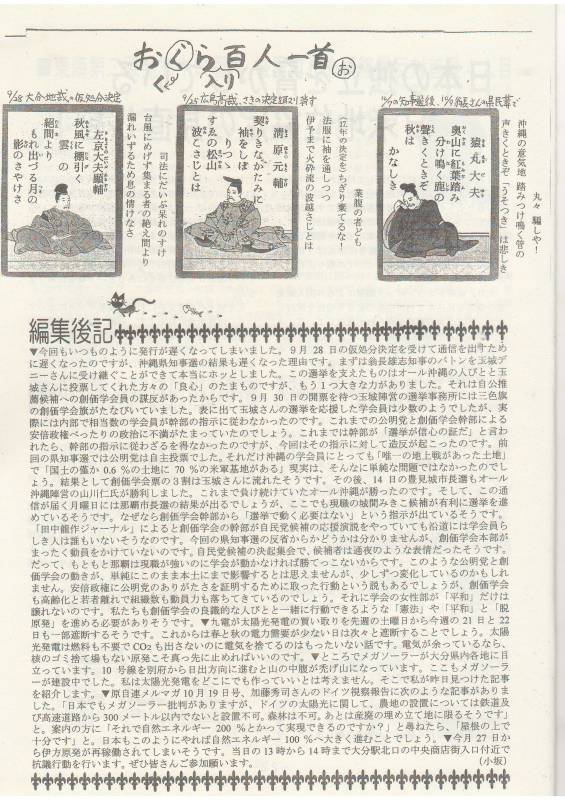 おくら百人一首
ぐ
入り
お
丸々 騙しや！
沖縄の意気地 踏みつけ鳴く菅の
声きくときぞ 「うそつき」は悲しき
猿丸大夫
奥山に紅葉踏み
分け鳴く鹿の
声きくときぞ
秋は
かなしき
業腹の者ども
（17年の決定を）ちぎり棄てるな！
法服に袖を通しつつ
伊予まで火砕流の波越さじとは
清原元輔
契りきなかたみに
袖をしぼ
りつゝ
すゑの松山
波こさじとは
司法にだいぶ呆れのすけ
台風にめげず集まる者の絶え間より
漏れいずるため息の情けなさ
9/28 大分地裁の仮処分決定
左京大夫顕輔
秋風に棚引く
雲の
絶間より
もれ出づる月の
影のさやけさ
編集後記
▼今回もいつものように発行が遅くなってしまいました。9月28日の仮処分決定を受けて通信を出すため
に遅くなったのですが、沖縄県知事選の結果も遅くなった理由です。まずは翁長雄志知事のバトンを玉城デ
ニーさんに受け継ぐことができて本当にホッとしました。この選挙を支えたものはオール沖縄の人びとと玉
城さんに投票してくれた方々の「良心」のたまものですが、もう1つ大きな力がありました。それは自公推
薦候補への創価学会員の謀反があったからです。9月30日の開票を待つ玉城陣営の選挙事務所には三色旗
の創価学会旗がたなびいていました。表に出て玉城さんの選挙を応援した学会員は少数のようでしたが、実
際には内部で相当数の学会員が幹部の指示に従わなかったのです。これまでの公明党と創価学会幹部による
安倍政権べったりの政治に不満がたまっていたのでしょう。これまでは幹部が「選挙が信心の証だ」と言わ
れたら、幹部の指示に従わざるを得なかったのですが、今回はその指示に対して造反が起こったのです。前
回の県知事選では公明党は自主投票でした。それだけ沖縄の学会員にとっても「唯一の地上戦があった土地」
で「国土の僅か0.6％の土地に70％の米軍基地がある」現実は、そんなに単純な問題ではなかったのでし
ょう。結果として創価学会票の3割は玉城さんに流れたそうです。その後、14日の豊見城市長選もオール
沖縄陣営の山川仁氏が勝利しました。これまで負け続けていたオール沖縄が勝ったのです。そして、この通
信が届く月曜日には那覇市長選の結果も出るでしょうが、ここでも現職の城間みきこ候補が有利に選挙を進
めているそうです。なぜなら創価学会幹部から「選挙で動く必要はない」という指示が出ているそうです。
「田中龍作ジャーナル」によると創価学会の幹部が自民党候補の応援演説をやっていても沿道には学会員ら
しき人は誰もいないそうなのです。今回の県知事選の反省からかどうかは分かりませんが、創価学会本部が
まったく動員をかけていないのです。自民党候補の決起集会で、候補者は通夜のような表情だったそうです。
だって、もともと那覇は現職が強いのに学会が動かなければ勝てっこないからです。このような公明党と創
価学会の動きが、単純にこのまま本土にまで影響するとは思えませんが、少しずつ変化しているのかもしれ
ません。安倍政権に公明党のありがたさを証明するために取った行動という説もあるでしょうが、創価学会
も高齢化と若者離れで組織数も動員力も落ちてきているのでしょう。それに学会の女性部が「平和」だけは
譲れないのです。私たちも創価学会の良識的な人びとと一緒に行動できるような「憲法」や「平和」と「脱
原発」を進める必要がありそうです。▼九電が太陽光発電の買い取りを先週の土曜日から今週の21日と22
日も一部遮断するそうです。これからは春と秋の電力需要が少ない日は次々と遮断することでしょう。太陽
光発電は燃料も不要でCO2も出さないのに電気を捨てるのはもったいない話です。電気が余っているなら、
核のゴミ捨て場もない原発こそ真っ先に止めればいいのです。▼ところでメガソーラーが大分県内各地に目
立っています。10号線を別府から日出方向に進むと山の中腹が禿げ山になっています。ここもメガソーラ
ーが建設中でした。私は太陽光発電をどこにでも作っていいとは考えません。そこで私が昨日見つけた記事
を紹介します。▼原自連メルマガ10月19日号、加藤秀司さんのドイツ視察報告に次のような記事がありま
した。「日本でもメガソーラー批判がありますが、ドイツの太陽光に関して、農地の設置については鉄道及
び高速道路から300メートル以内でないと設置不可。森林は不可。あとは産廃の埋め立て地に限るそうです」
と。案内の方に「それで自然エネルギー200％とかって実現できるのですか？」と尋ねたら、「屋根の上で
十分です」と。日本もこのようにやれば自然エネルギー100％へ大きく進むことでしょう。▼今月27日か
ら伊方原発が再稼働されてしまいそうです。当日の13時から14時まで大分駅北口の中央商店街入口付近で
抗議行動を行います。ぜひ皆さんご参加願います。
（小坂）